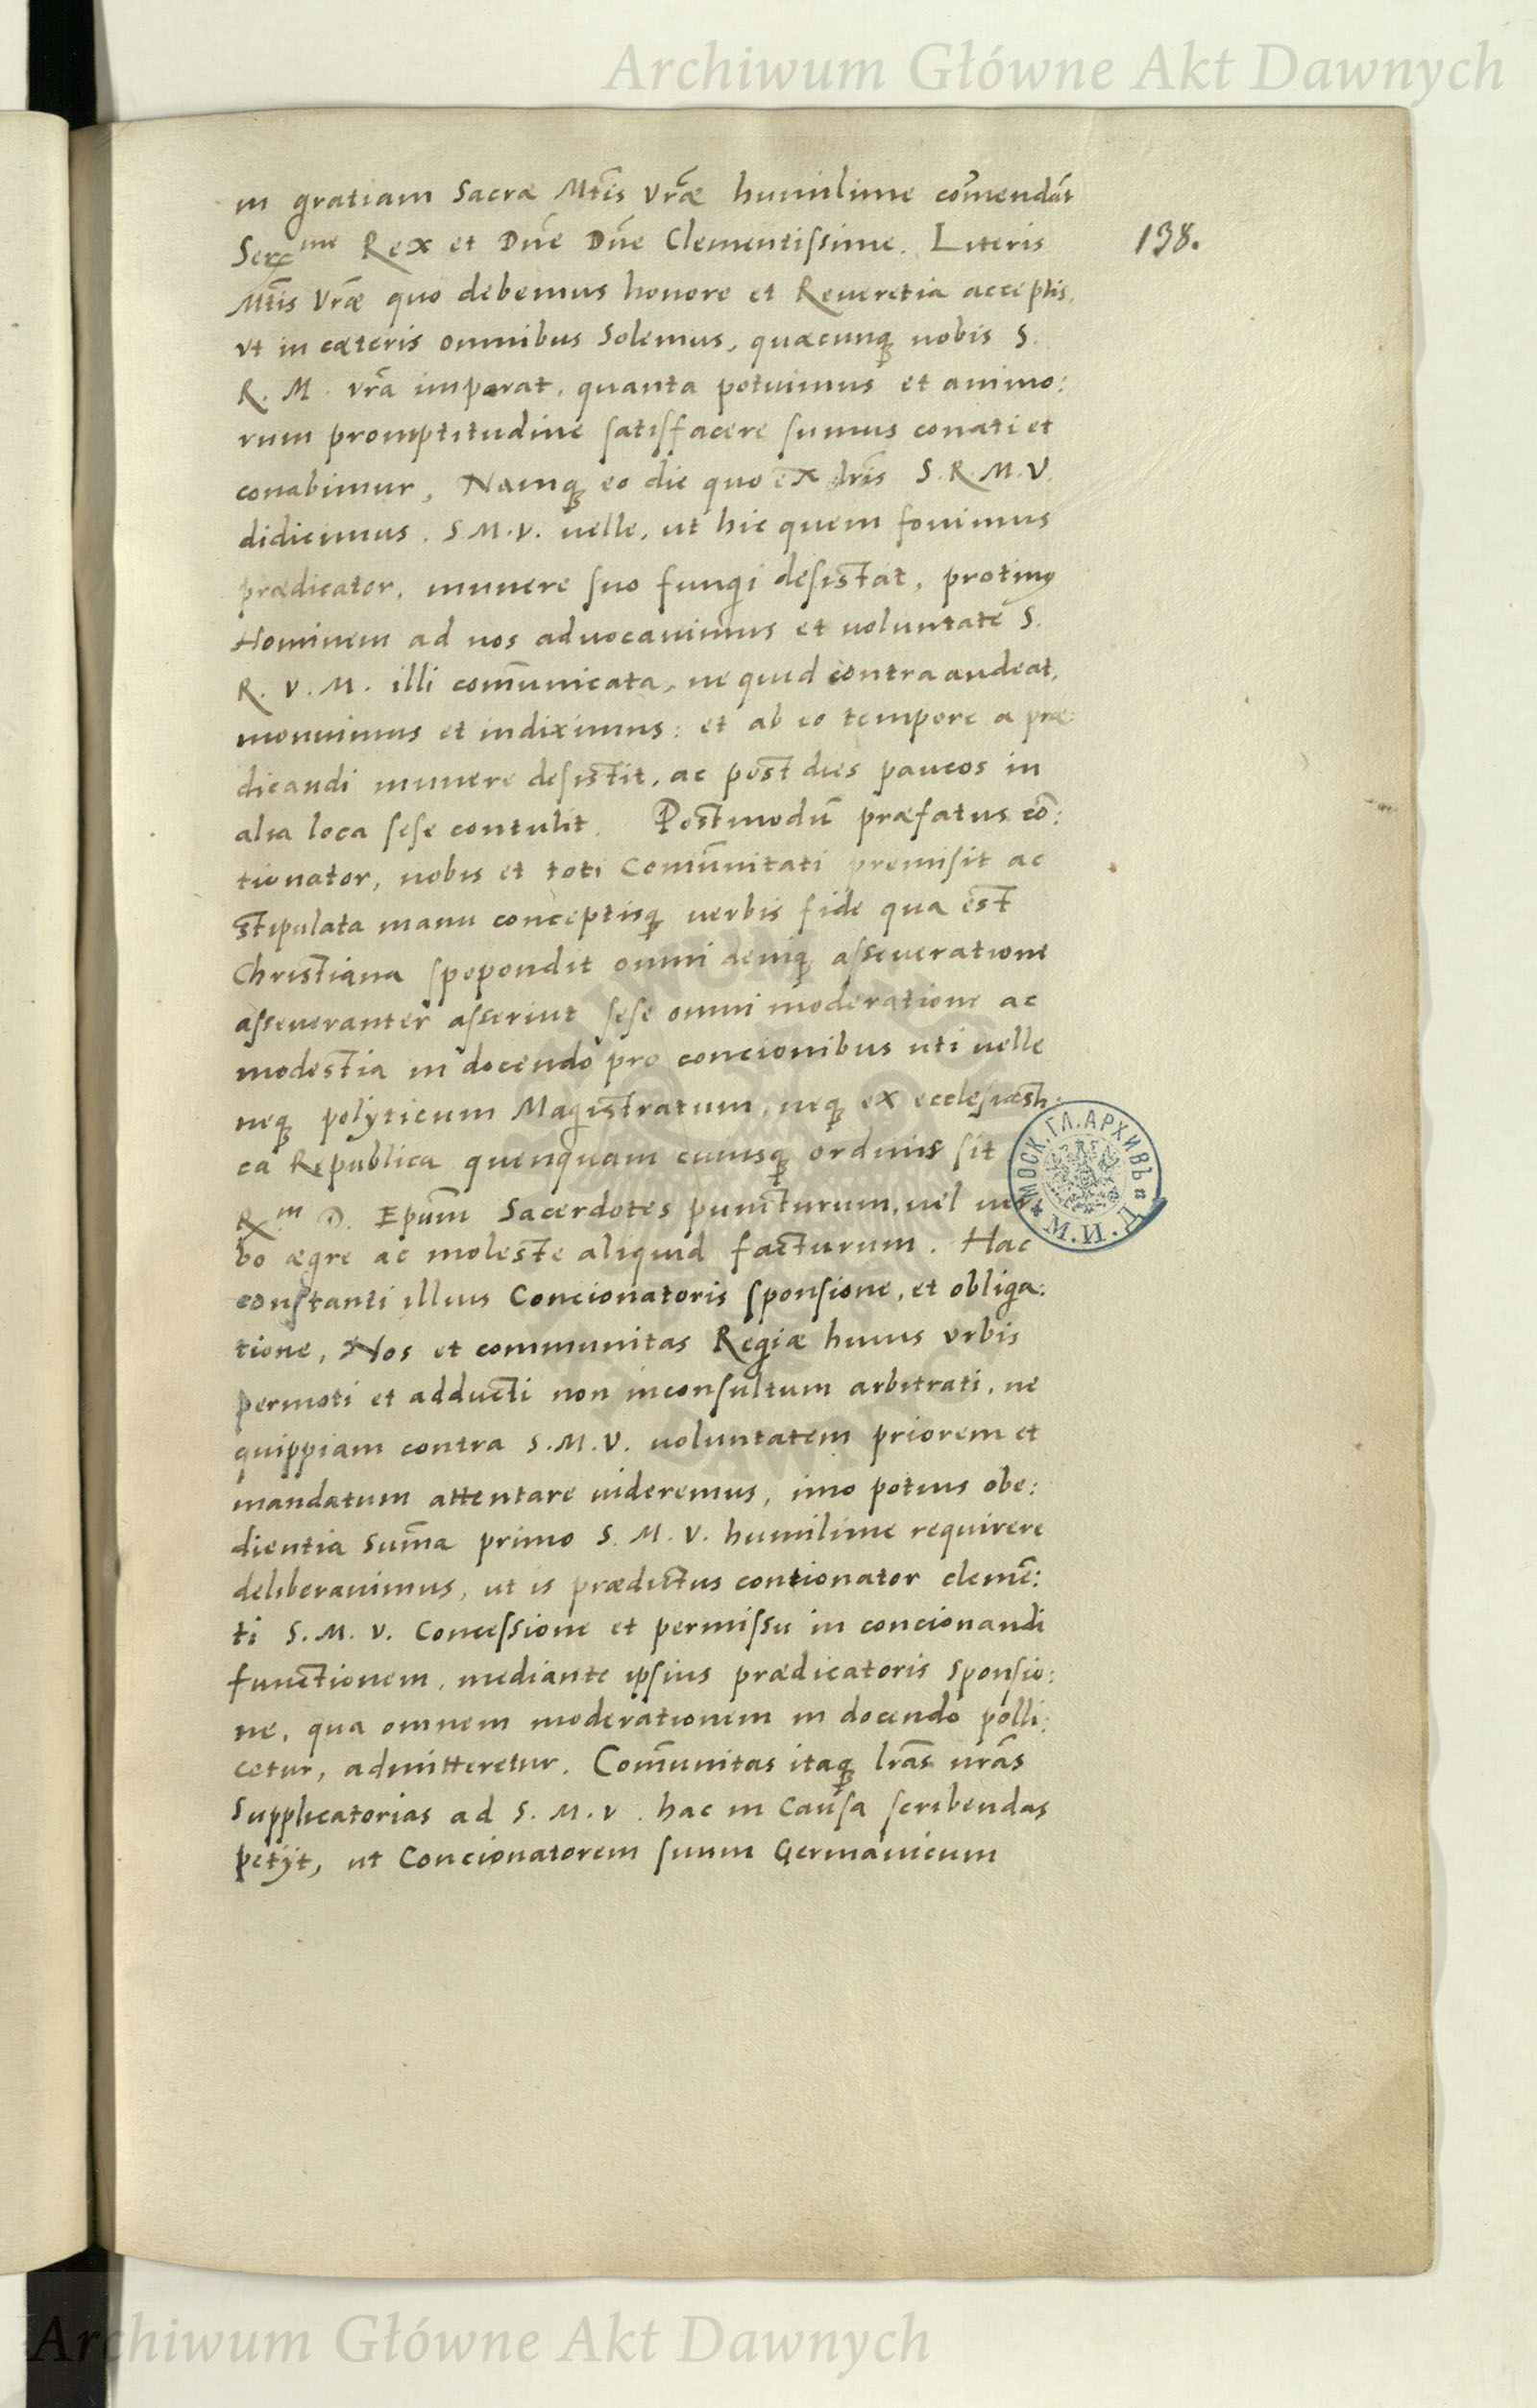 Archiwum Główne Akt Dawnych
in gratiam Sacræ Mtĩs Vrãe humilime com̃endãt
138.
Ser.me Rex et Dñe Dñe Clementiſsime. Literis
Mtĩs Vrãe quo debemus honore et Reueretia acceptis,
vt in cæteris omnibus Solemus, quæcunq nobis S.
R. M. vrã imperat, quanta potuimus et animo:
rum promptitudine ſatiſfacere ſumus conati et
conabimur, Namq eo die quo ex lrĩs S. R. M. V.
didicimus. S M. V. uelle, ut hic quem fouimus
prædicator, munere ſuo fungi deſistat, protinꝰ
Hominem ad nos aduocauimus et uoluntatẽ S.
R. V. M. illi com̃unicata, ne quid contra audeat,
monuimus et indiximus: et ab eo tempore a præ:
dicandi munere deſistit, ac post dies paucos in
alia loca ſeſe contulit. Postmodũ præfatus cõ:
tionator, nobis et toti Com̃unitati promiſit ac
stipulata manu conceptisq uerbis fide qua est
Christiana ſpopondit omni deniq aſseueratione
aſseueranter aſseriut ſeſe omni moderatione ac
modestia in docendo pro concionibus uti uelle
neq polyticum Magistratum, neq ex eccleſiasti:
ca Republica quenquam cuiusq ordinis ſit
R.m D. Epũm Sacerdotes puncturum, uel uer
bo ægre ac moleste aliquid facturum. Hac
constanti illius Concionatoris ſponſione, et obliga:
tione, Nos et communitas Regiæ huius vrbis
permoti et adducti non inconſultum arbitrati, ne
quippiam contra S. M. V. uoluntatem priorem et
mandatum attentare uideremus, imo potius obe:
dientia Sum̃a primo S. M. V. humilime requirere
deliberauimus, ut is prædictus contionator clemẽ:
ti S. M. V. Conceſsione et permiſsu in concionandi
functionem, mediante ipſius prædicatoris ſponſio:
ne, qua omnem moderationem in docendo polli:
cetur, admitteretur. Com̃unitas itaq lrãs nrãs
Supplicatorias ad S. M. V. hac in Cauſa ſcribendas
petijt, ut Concionatorem ſuum Germanicum
МОСК. ГЛ. АРХИВЪ
М. И. Д.
Archiwum Główne Akt Dawnych